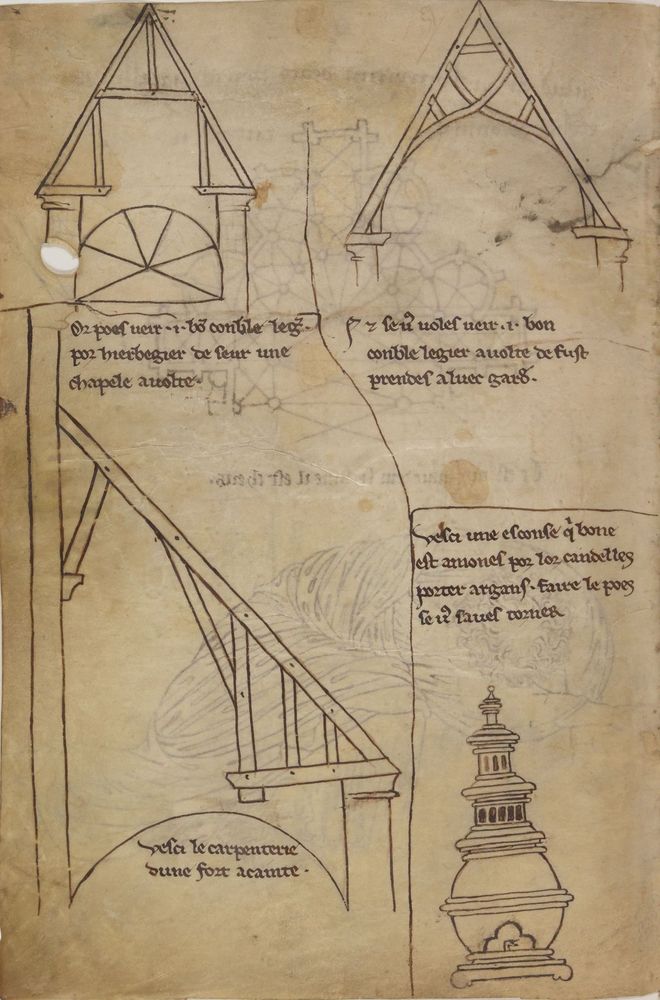 Or poes veir .i. bō conble legͥ.
por hierbegier de seur une
chapele avolte.
⁊ se vͦ voles veir .i. bon
conble legier avolte de fust
prendes aluec gard.
Vesci une esconse qͥ bone
est amones por lor candelles
porter argans. faire le poes
se vͦ saves torner
Vesci le carpenterie
dune fort acainte.